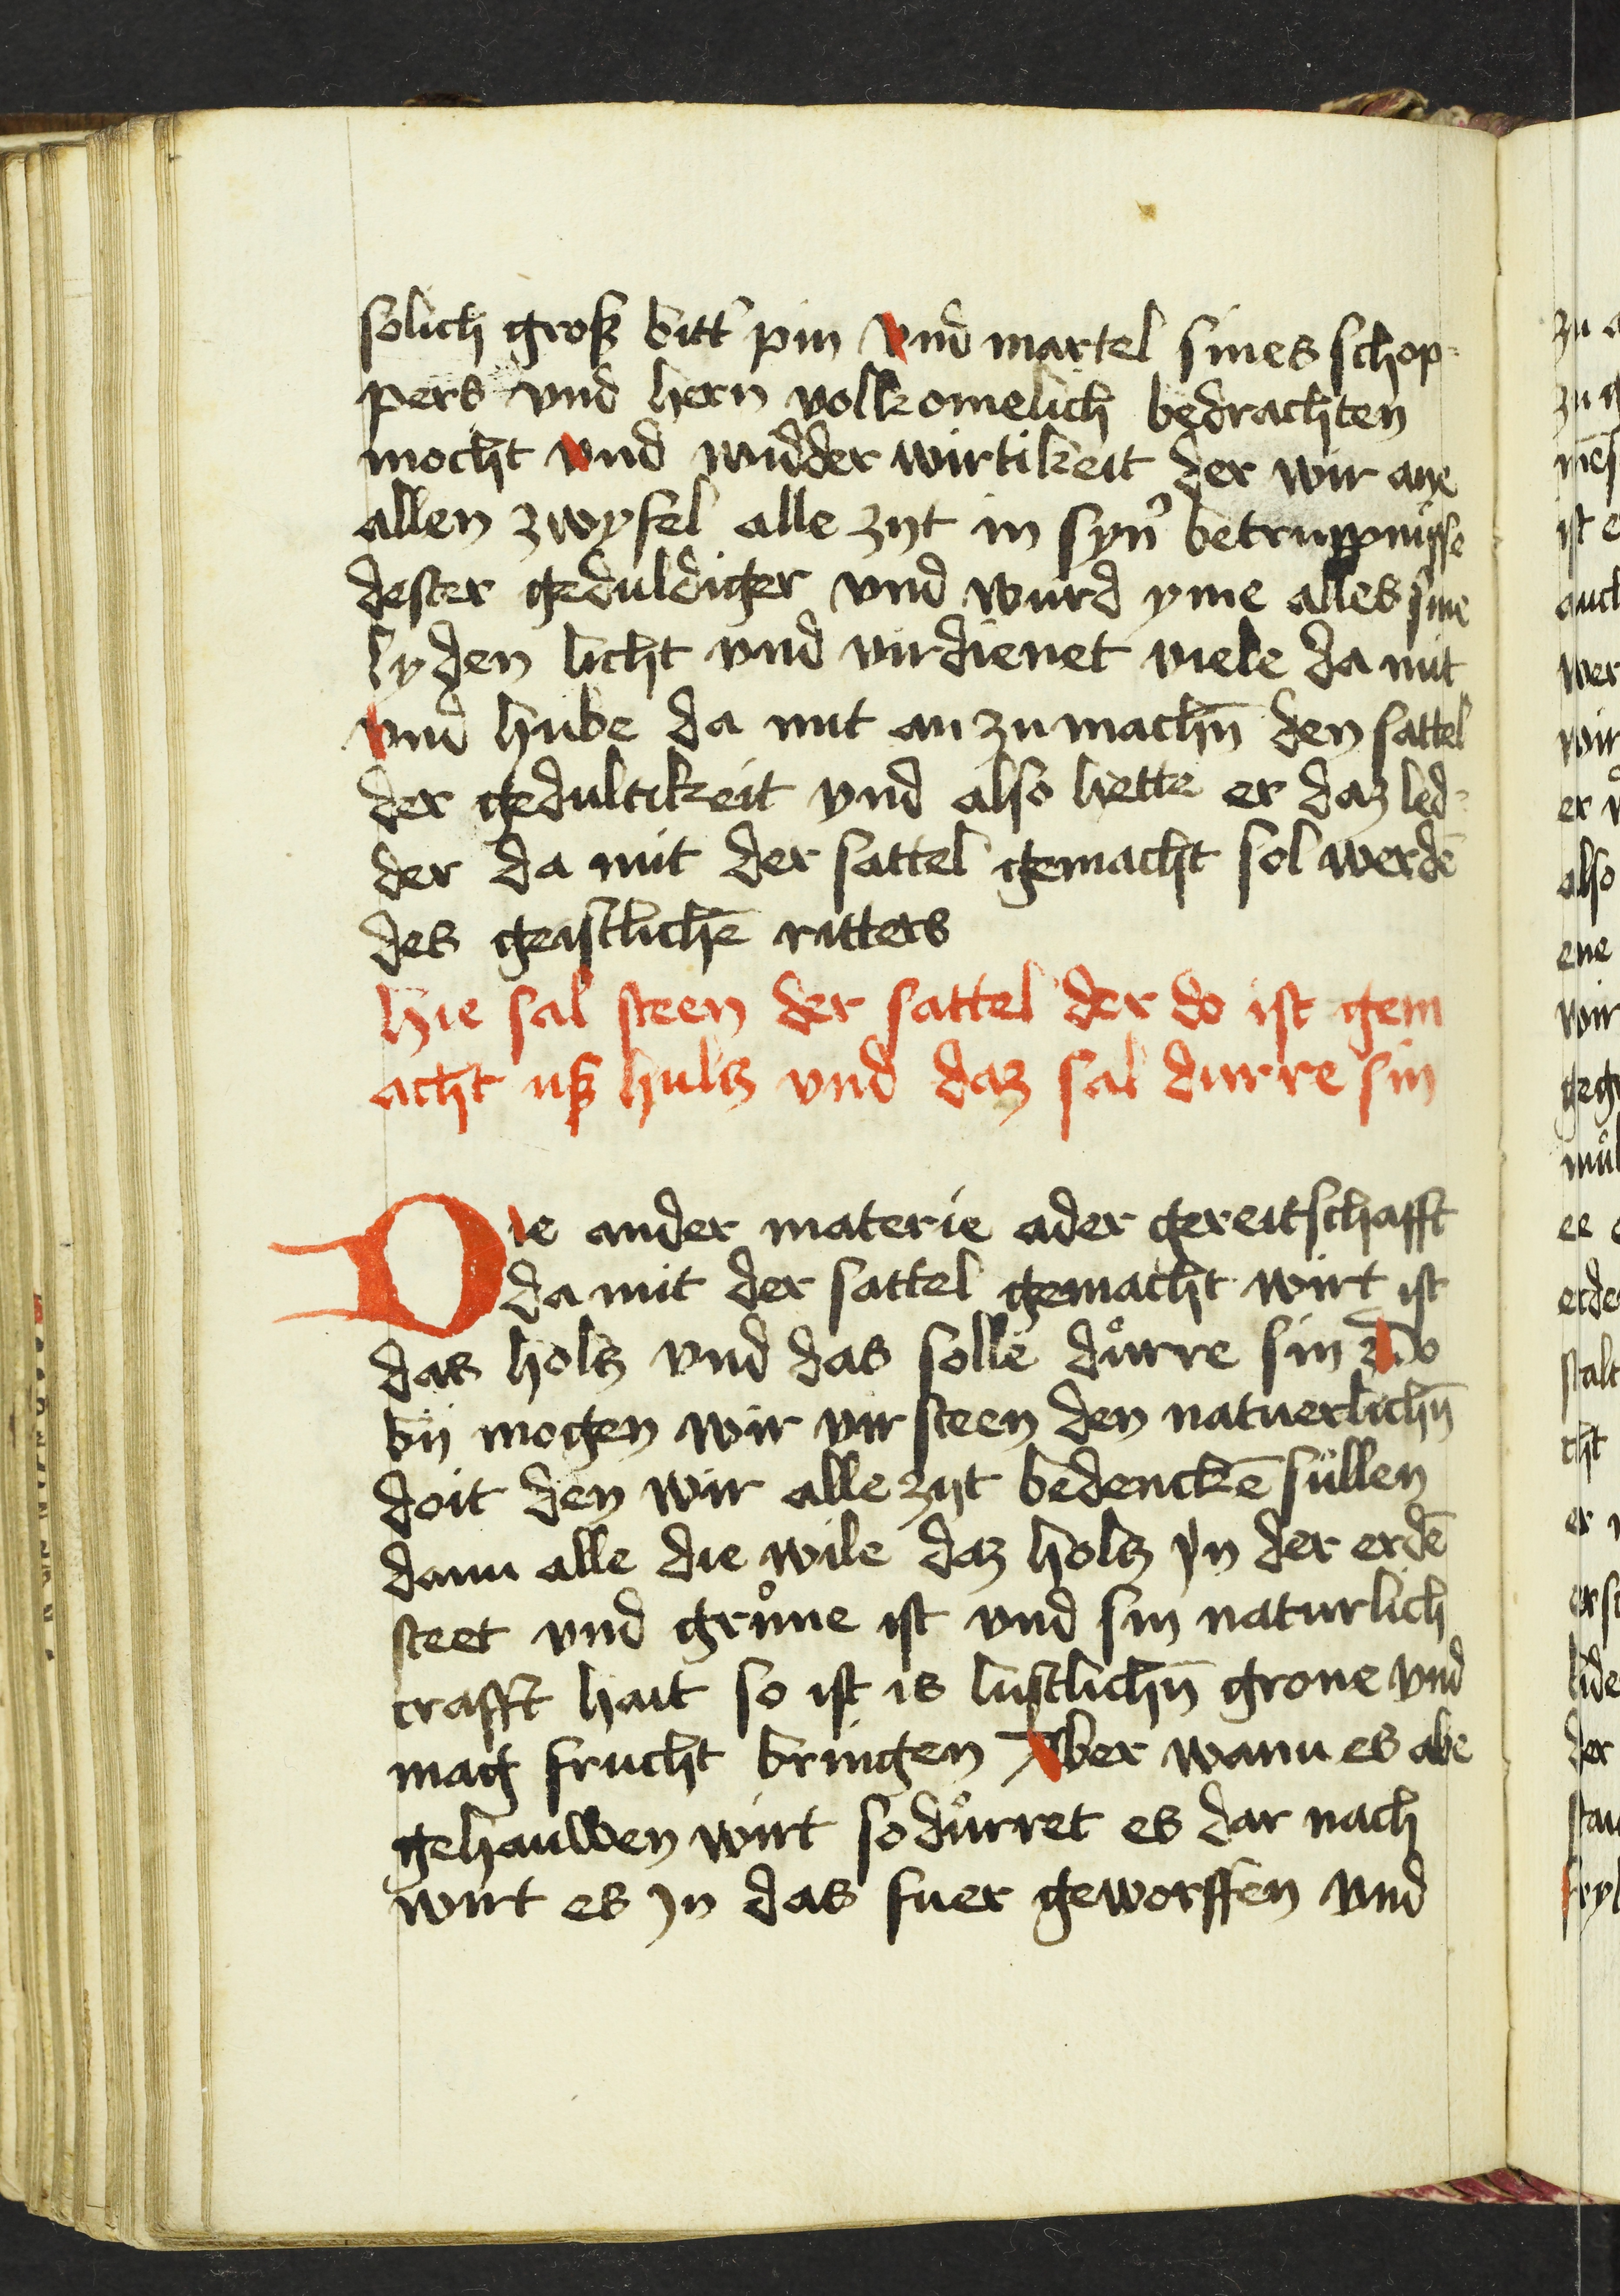 solich groß bitt' pin vnd martel sines schop-
pers vnd hern volkomelich bedrachten
mocht vnd widder wirtikeit der wir ane
allen zwyfel alle zijt in syn' betruppnuͤsse
dester geduldiger vnd wurd yme alles sine
lyden licht vnd virdienet viele da mit
vnd hube da mit an zu machn̄ den sattel
der gedultikeit vnd also hette er daz led-
der da mit der sattel gemacht sol werdē
des geistlichē ritters
Hie sal steen der sattel der do ist gem
acht uß hultz vnd daz sal durre sin
Die ander materie ader gereitschafft
da mit der sattel gemacht wirt ist
das holtz vnd das solle duͦrre sin Do
bij mogen wir virsteen den natuerlichn̄
doit den wir alle zijt bedenckē sullen
dann alle die wile daz holtz jn der erdē
steet vnd gruͦne ist vnd sin naturlich
crafft hait so ist is lustlichn̄ grone vnd
mag frucht bringen Aber wann es abe
gehauwen wirt so duͦrret es dar nach
wirt es jn das fuer geworffen vnd